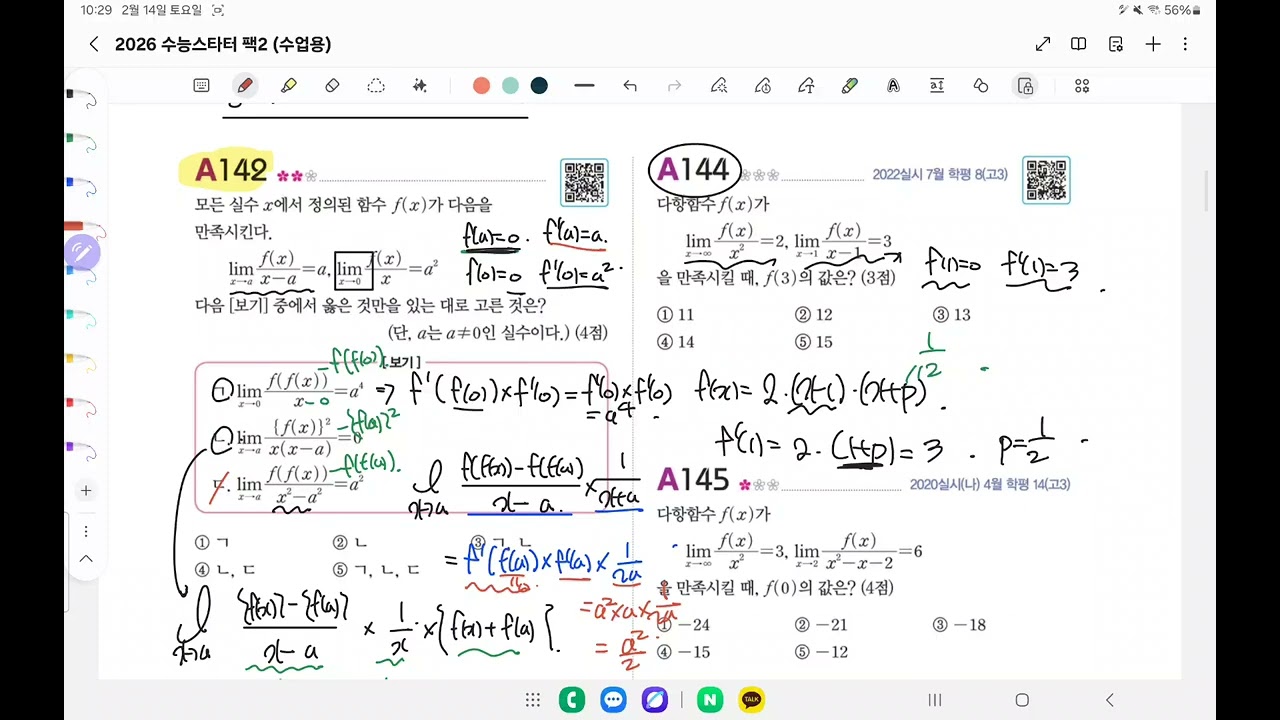 10:29 2월 14일 토요일
56%
2026 수능스타터 팩2 (수업용)
A142
모든 실수 x에서 정의된 함수 f(x)가 다음을
만족시킨다.
lim x→a f(x)/(x-a) = a, lim x→0 f(x)/x = a²
f(a)=0. f'(a)=a.
f(0)=0 f'(0)=a².
다음 [보기] 중에서 옳은 것만을 있는 대로 고른 것은?
(단, a는 a≠0인 실수이다.) (4점)
[보기]
ㄱ. lim x→0 f(f(x))/x = a⁴
-f(f(0)).
-0
⇒ f'(f(0))×f'(0) = f'(0)×f'(0)
= a⁴.
ㄴ. lim x→a {f(x)}²/x(x-a) = 0
-{f(a)}²
ㄷ. lim x→a f(f(x))/(x²-a²) = a²
-f(f(a)).
l x→a (f(f(x))-f(f(a)))/(x-a) × 1/(x+a)
① ㄱ ② ㄴ ③ ㄱ, ㄴ
④ ㄴ, ㄷ ⑤ ㄱ, ㄴ, ㄷ
= f'(f(a))×f'(a)×1/2a
"0
= a²×a×1/2a
= a²/2
l x→a ({f(x)}-{f(a)})/(x-a) × 1/x × {f(x)+f(a)}.
A144
2022실시 7월 학평 8(고3)
다항함수 f(x)가
lim x→∞ f(x)/x² = 2, lim x→1 f(x)/(x-1) = 3
을 만족시킬 때, f(3)의 값은? (3점)
f(1)=0 f'(1)=3.
① 11 ② 12 ③ 13
④ 14 ⑤ 15
1/2
f(x) = 2·(x-1)·(x+p).
f'(1) = 2·(1+p) = 3. p=1/2
A145
2020실시(나) 4월 학평 14(고3)
다항함수 f(x)가
lim x→∞ f(x)/x² = 3, lim x→2 f(x)/(x²-x-2) = 6
을 만족시킬 때, f(0)의 값은? (4점)
① -24 ② -21 ③ -18
④ -15 ⑤ -12
N
TALK